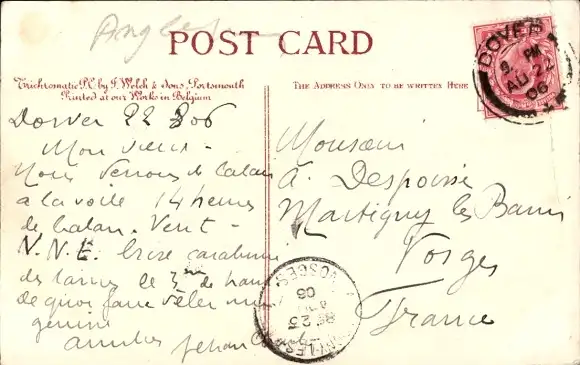 Angle
POST CARD
Trichromatic P.C. by F. Welch & Sons, Portsmouth
Printed at our Works in Belgium
THE ADDRESS ONLY TO BE WRITTEN HERE
DOVER
9 PM
AU 22
06
Dover 22 8 06
Mon vieux -
Nous venons de Calais
a la voile 14 heures
de Calais. Vent -
N.N.E. brise carabinée
des lames de 3m de haut
de quoi faire vêler une
génisse
amitiés Jehan
Monsieur
A. Despoisse
Martigny les Bains
Vosges
France
VOSGES
23
06